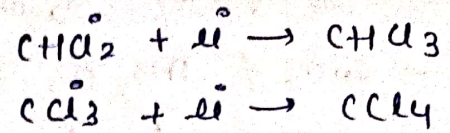 CHCl2• + Cl• → CHCl3
CCl3• + Cl• → CCl4